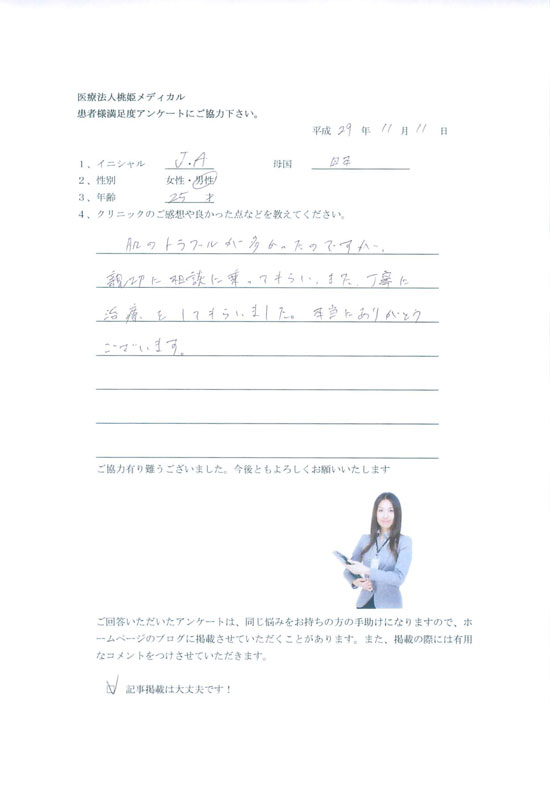 医療法人桃姫メディカル
患者様満足度アンケートにご協力下さい。
平成 29 年 11 月 11 日
1、イニシャル J.A 母国 日本
2、性別 女性・男性
3、年齢 25 才
4、クリニックのご感想や良かった点などを教えてください。
肌のトラブルが多かったのですが、
親切に相談に乗ってもらい、また、丁寧に
治療をしてもらいました。本当にありがとう
ございます。
ご協力有り難うございました。今後ともよろしくお願いいたします
ご回答いただいたアンケートは、同じ悩みをお持ちの方の手助けになりますので、ホ
ームページのブログに掲載させていただくことがあります。また、掲載の際には有用
なコメントをつけさせていただきます。
記事掲載は大丈夫です！